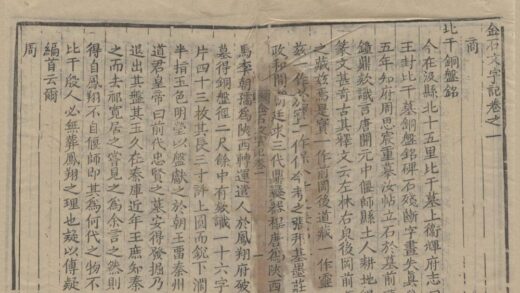 金石文字記卷之一
商
比干銅盤銘
今在汲縣北十五里比干墓上衛輝府志曰
王封比干墓銅盤銘碑石殘斷字畫失真
五年知府周思宸重摹汝帖立石於墓前
鐘鼎款識言唐開元中偃師縣土人耕地
篆文甚奇古其釋文云左林右泉後岡前
之藏茲焉是寶一作前岡後道藏一作靈
茲一作於寶一作保今考之張邦基墨莊
政和間朝廷求三代鼎彝器程唐為陝西
馬李朝孺為陝西轉運遣人於鳳翔府破
墓得銅盤徑二尺餘中有款識一十六字
片四十三枚其長三寸許上圓而銳下濶
半指玉色明瑩以盤獻之於朝玉留秦州
道君皇帝曰前代忠賢之墓安得發掘乃
退出其盤其玉久在秦庫近年王庶知秦
之而去祁寬居之嘗見之為余言之然則
得自鳳翔不自偃師即其為何代之物不
比干殷人必無葬鳳翔之理也疑以傳疑
編首云爾
周